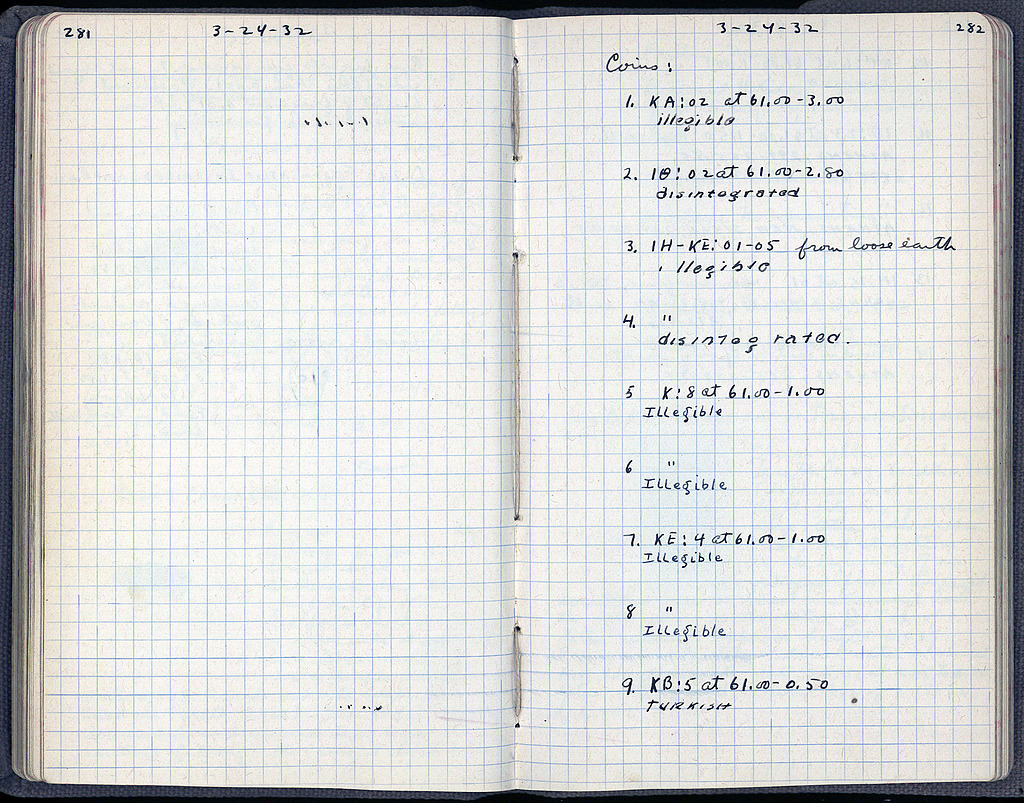 281
3-24-32
3-24-32
282
Coins:
1. KA:02 at 61.00-3.00
illegible
2. ΙΘ:02 at 61.00-2.80
disintegrated
3. ΙΗ-ΚΕ:01-05 from loose earth
illegible
4. "
disintegrated.
5 K:8 at 61.00-1.00
Illegible
6 "
Illegible
7. KE:4 at 61.00-1.00
Illegible
8 "
Illegible
9. KB:5 at 61.00-0.50
Turkish